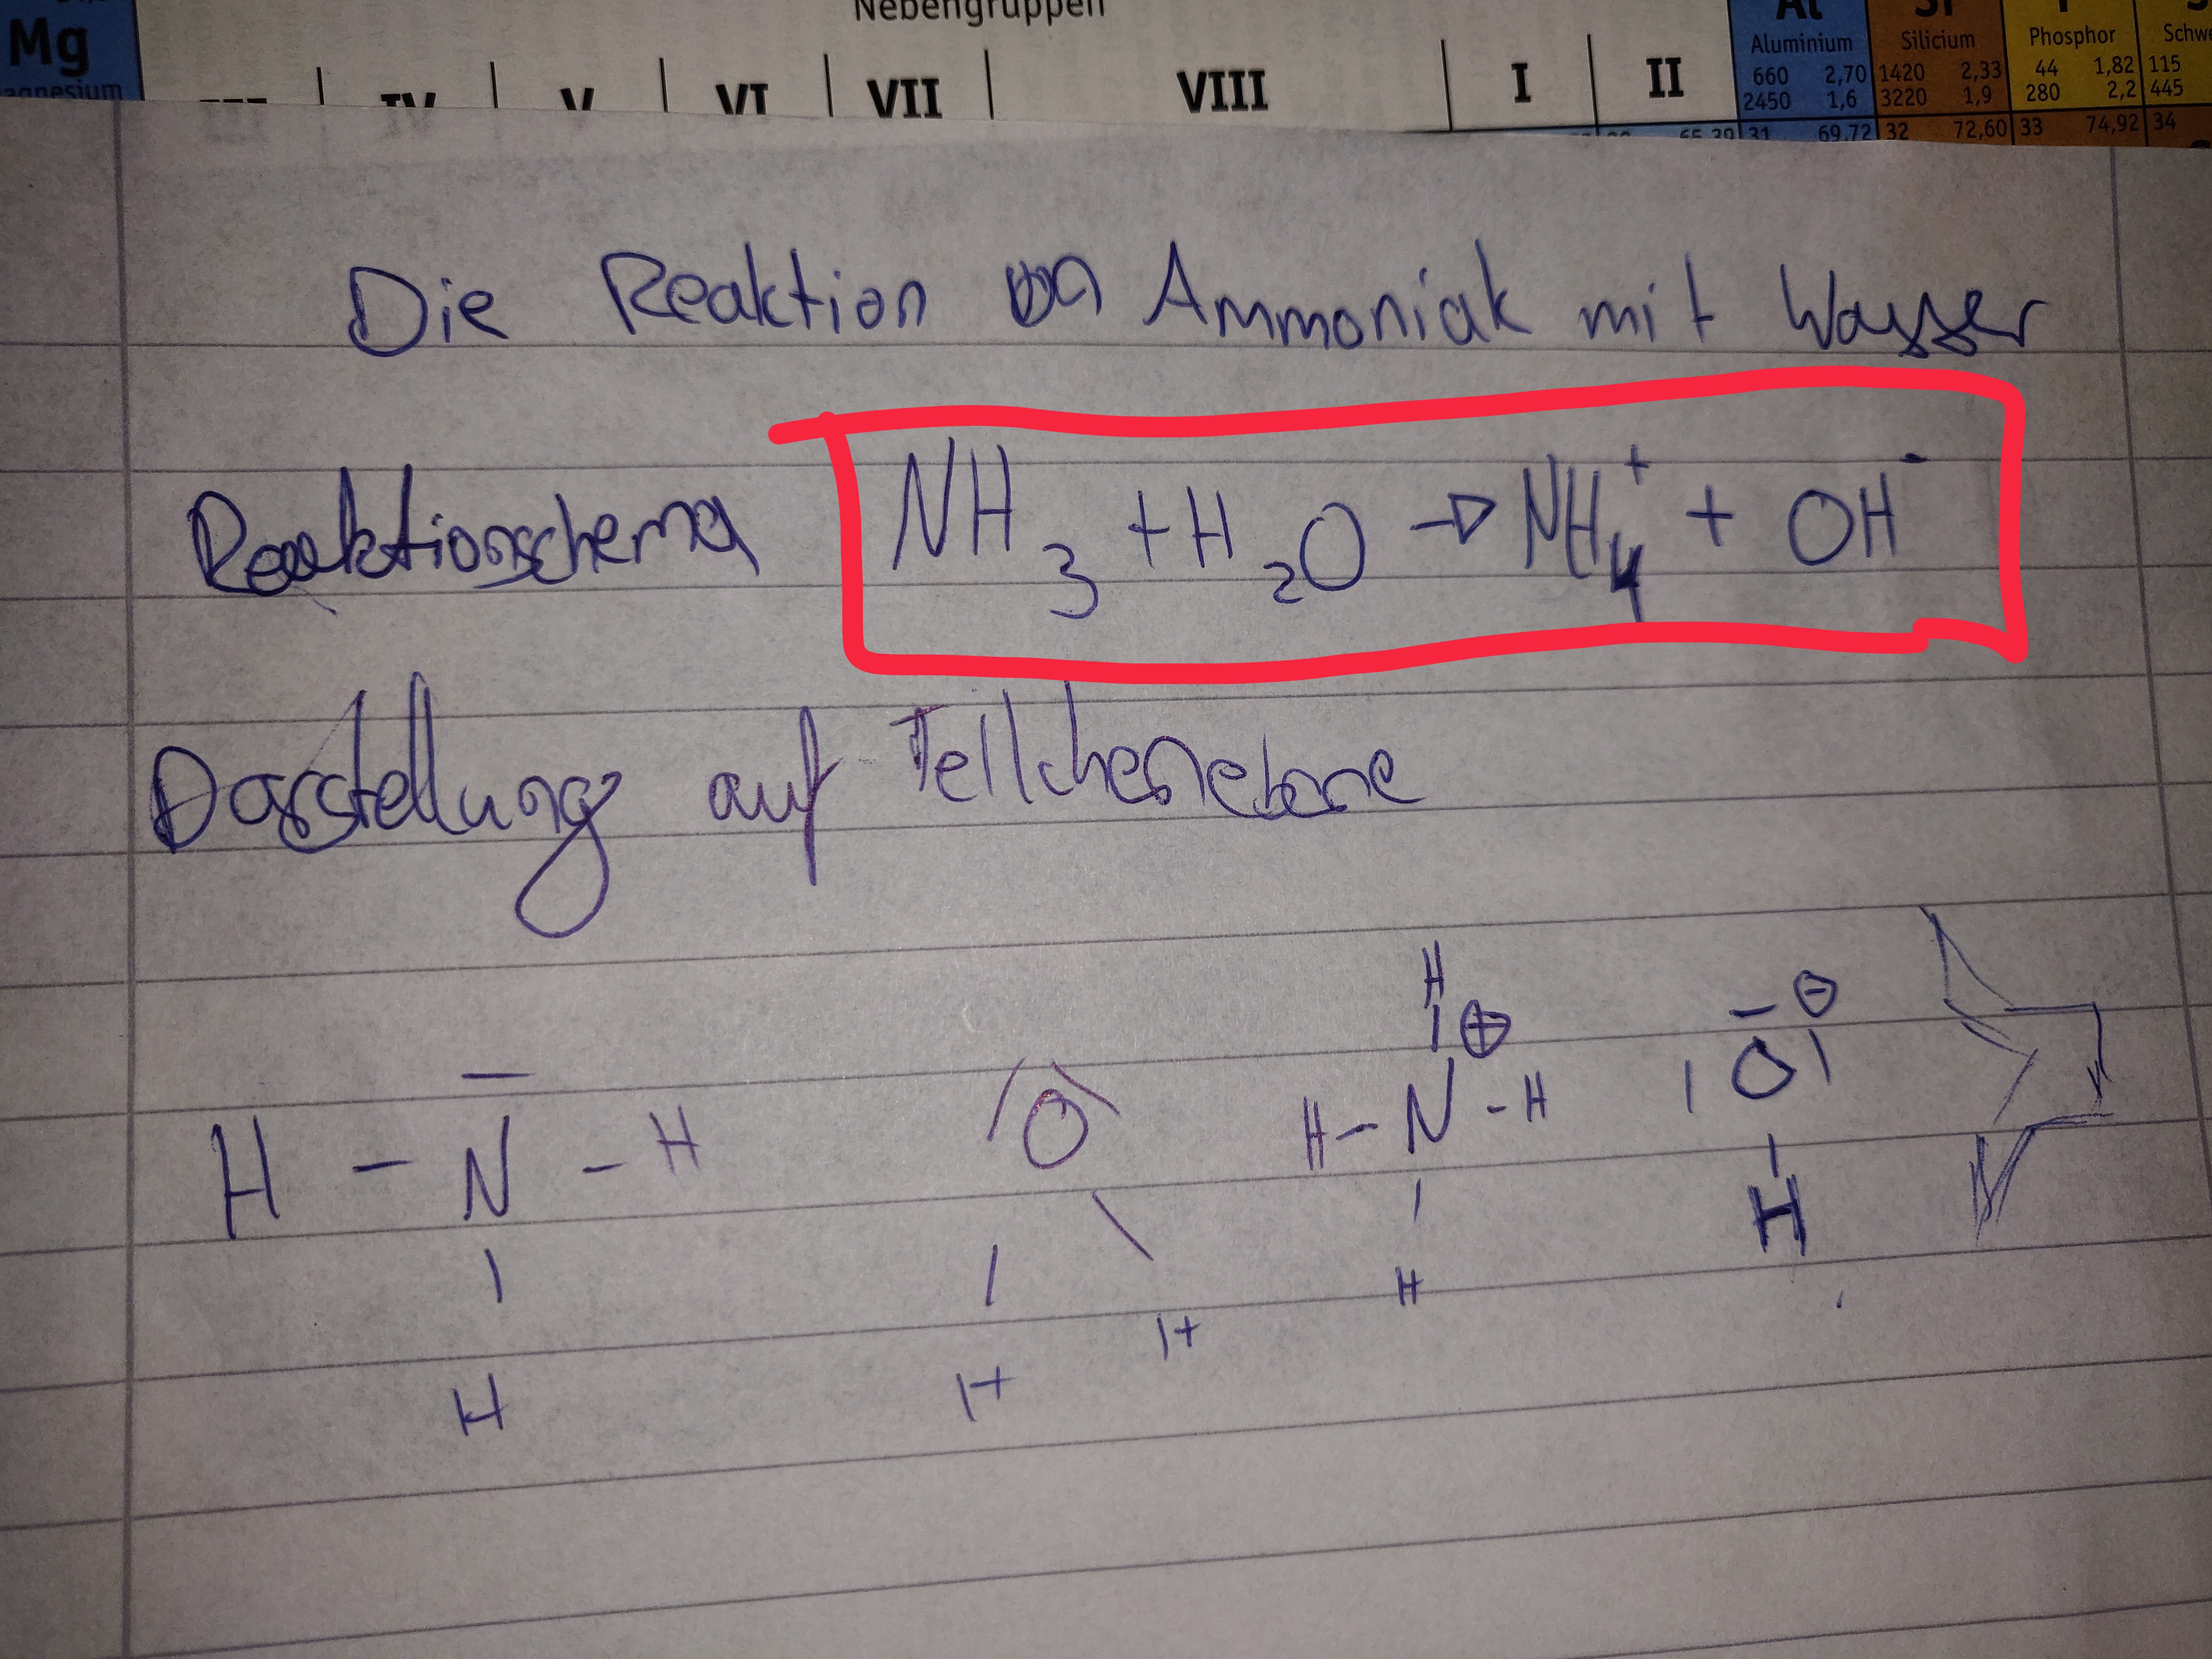 Nebengruppen
Mg
Magnesium
III IV V VI VII VIII I II
Al Si P
Aluminium Silicium Phosphor Schwe
660 2,70 1420 2,33 44 1,82 115
2450 1,6 3220 1,9 280 2,2 445
65,39 31 69,72 32 72,60 33 74,92 34
Die Reaktion von Ammoniak mit Wasser
Reaktionsschema NH₃ + H₂O → NH₄⁺ + OH⁻
Darstellung auf Teilchenebene
H ⊕ ⊖
H – N – H O H – N – H O
H H H H H